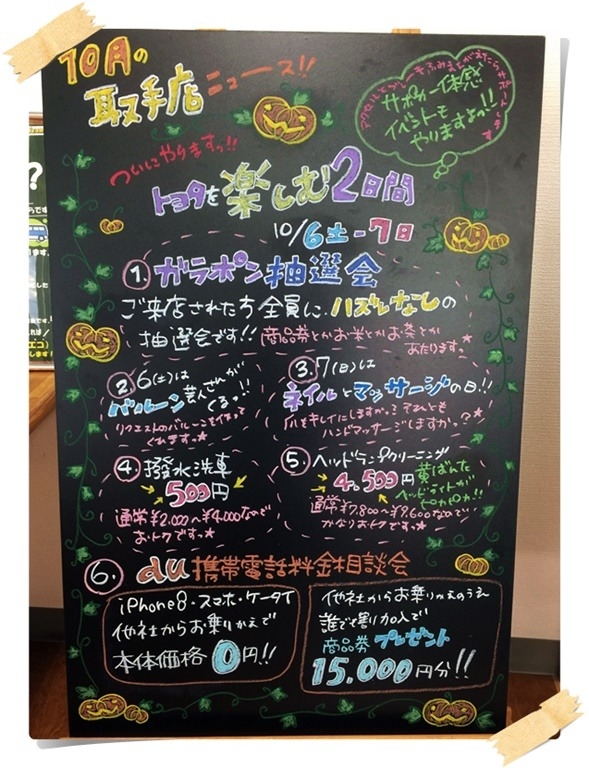 10月の
取手店
ニュース!!
アクセルとブレーキふみまちがえたらサポートします
サポカー体感
イベントも
やりますよっ!!
ついにやりますっ!!
トヨタを楽しむ2日間
10/6土-7日
1.ガラポン抽選会
ご来店された方全員に、ハズレなしの
抽選会です!!商品券とかお米とかお茶とか
あたります。
2.6(土)は
バルーン芸人さんが
くるっ!!
リクエストのバルーンを作って
くれます。☆
3.7(日)は
ネイルとマッサージの日!!
爪をキレイにしますかっ?それとも
ハンドマッサージしますかっ?★
4.撥水洗車
500円
通常¥2,000〜¥4,000なので
おトクです。☆
5.ヘッドランプクリーニング
4,500円
黄ばんだ
ヘッドライトが
ピカピカ!!
通常¥7,800〜¥9,600なので
かなりおトクです。☆
6.au携帯電話料金相談会
iPhone8・スマホ・ケータイ
他社からお乗りかえで
本体価格0円!!
他社からお乗りかえのうえ
誰でも割加入で
商品券プレゼント
15,000円分!!
?
エコ